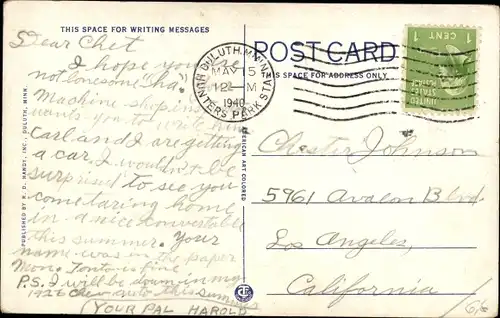 THIS SPACE FOR WRITING MESSAGES
Dear Chet
I hope you're
not lonesome "ha."
Machine shop ins
wants you to write him
Carl and I are getting
a car. I wouldn't be
surprised to see you
come taring home
in a nice convertable
this summer. Your
name was in the paper
Mon. Tonto is fine
P.S. I will be down in my
1926 Chev auto this summer
(YOUR PAL HAROLD
PUBLISHED BY H. D. HARDY, INC., DULUTH, MINN.
AMERICAN ART COLORED
DULUTH, MINN.
MAY 15
12 M
1940
HUNTERS PARK STA.
POST CARD
THIS SPACE FOR ADDRESS ONLY
1 CENT 1
UNITED STATES POSTAGE
Chester Johnson
5961 Avalon Blvd.
Los Angeles,
California